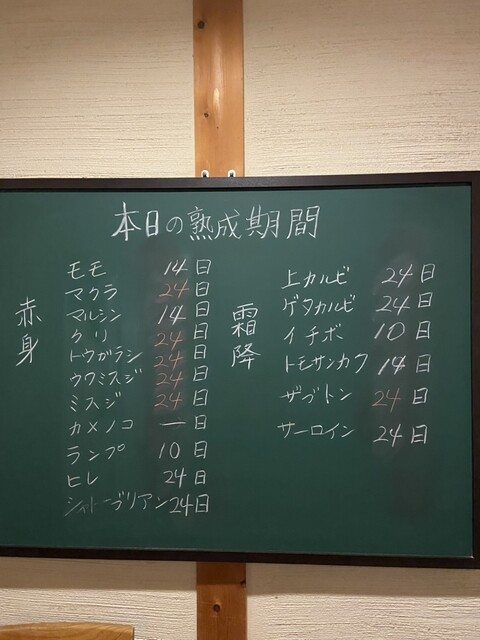 本日の熟成期間
赤身
モモ 14日
マクラ 24日
マルシン 14日
クリ 24日
トウガラシ 24日
ウワミスジ 24日
ミスジ 24日
カメノコ ー日
ランプ 10日
ヒレ 24日
シャトーブリアン 24日
霜降
上カルビ 24日
ゲタカルビ 24日
イチボ 10日
トモサンカク 14日
ザブトン 24日
サーロイン 24日